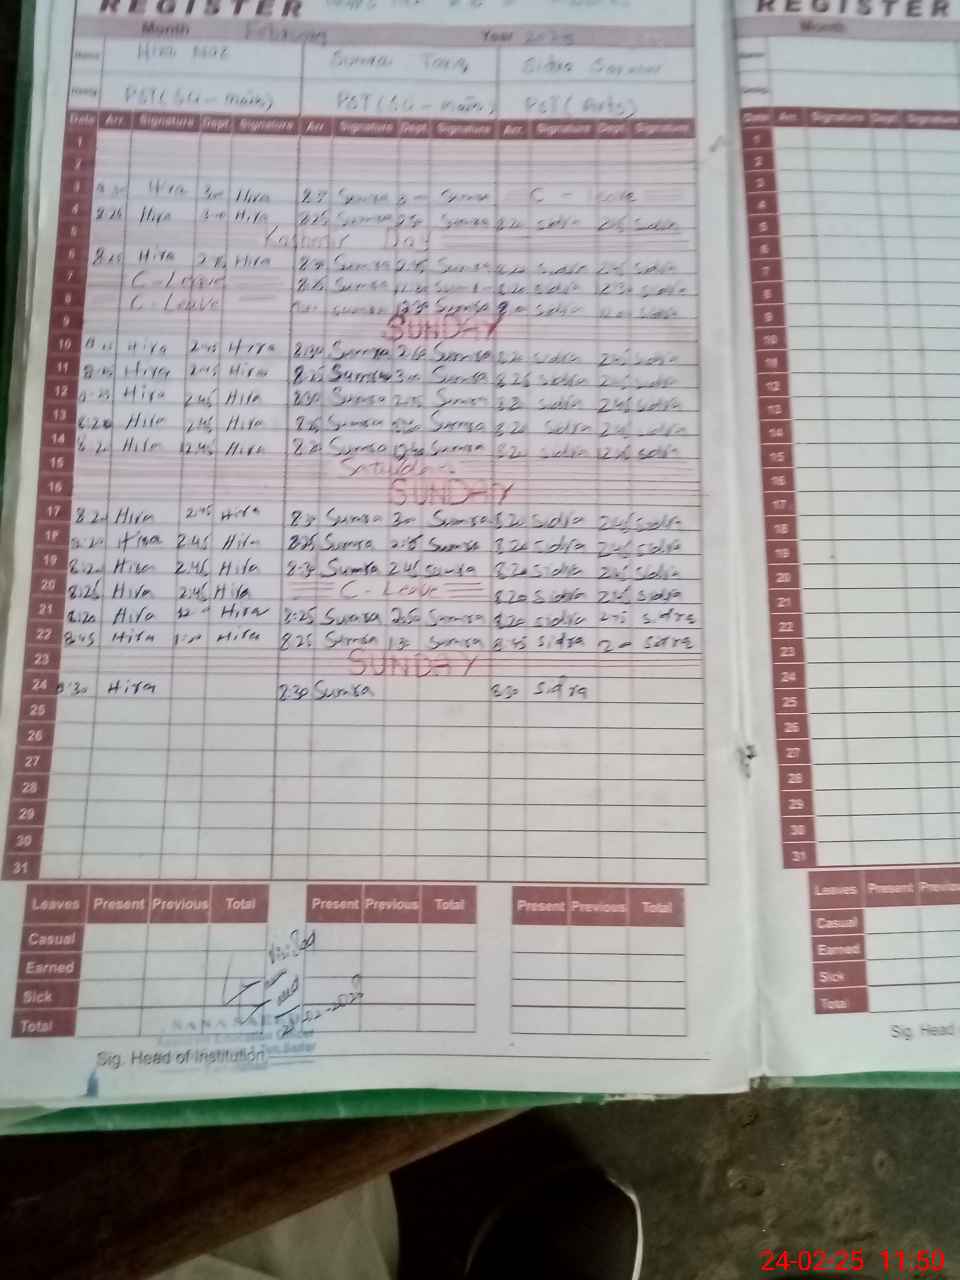 REGISTER REGISTER
Month February Year 2025 Month
Name Hira Naz Sumra Tariq Sidra
PST (SG-main) PST (SG-main) PST (Arts)
Date Arr. Signature Dept. Signature Arr. Signature Dept. Signature Arr. Signature Dept. Signature Date Arr. Signature Dept. Signature
1 1
2 2
3 Hira 3:00 Hira 8:30 Sumra Sumra C - leave 3
4 8:25 Hira 3:00 Hira 8:25 Sumra Sumra 8:20 Sidra 2:45 Sidra 4
5 Kashmir Day 5
6 8:25 Hira 2:45 Hira 8:30 Sumra 2:45 Sumra 8:20 Sidra 2:45 Sidra 6
7 C - Leave 8:25 Sumra Sumra 8:20 Sidra 12:30 Sidra 7
8 C - Leave Sumra 12:30 Sumra Sidra Sidra 8
9 SUNDAY 9
10 Hira 2:45 Hira 8:30 Sumra 2:50 Sumra 8:20 Sidra 2:45 Sidra 10
11 8:25 Hira 2:45 Hira 8:25 Sumra 3:00 Sumra 8:25 Sidra 2:45 Sidra 11
12 8:25 Hira 2:45 Hira 8:30 Sumra 2:45 Sumra 8:20 Sidra 2:45 Sidra 12
13 8:20 Hira 2:45 Hira 8:25 Sumra Sumra 8:20 Sidra 2:45 Sidra 13
14 8:20 Hira 12:45 Hira 8:20 Sumra 12:40 Sumra 8:20 Sidra 12:45 Sidra 14
15 Saturday 15
16 SUNDAY 16
17 8:20 Hira 2:45 Hira 8:30 Sumra 3:00 Sumra 8:20 Sidra 2:45 Sidra 17
18 8:20 Hira 2:45 Hira 8:25 Sumra 2:45 Sumra 8:20 Sidra 2:45 Sidra 18
19 8:20 Hira 2:45 Hira 8:30 Sumra 2:45 Sumra 8:20 Sidra 2:45 Sidra 19
20 8:25 Hira 2:45 Hira C - Leave 8:20 Sidra 2:45 Sidra 20
21 8:20 Hira Hira 8:25 Sumra 2:50 Sumra 8:20 Sidra Sidra 21
22 8:45 Hira Hira 8:25 Sumra 1:30 Sumra 8:45 Sidra Sidra 22
23 SUNDAY 23
24 8:30 Hira 8:30 Sumra 8:30 Sidra 24
25 25
26 26
27 27
28 28
29 29
30 30
31 31
Leaves Present Previous Total Present Previous Total Present Previous Total Leaves Present Previous
Casual Casual
Earned Visited Earned
Sick Sick
Total Total
Assistant Education Officer
Sig. Head of Institution Sig. Head
24-02-25 11:50